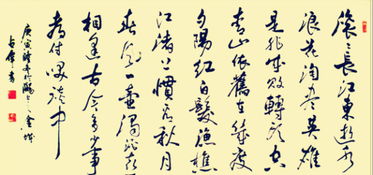 滚滚長江東逝水
浪花淘盡英雄
是非成敗轉頭空
青山依舊在幾度
夕陽紅白髮漁樵
江渚上慣看秋月
春風一壺濁酒喜
相逢古今多少事
都付笑談中
庚寅
書